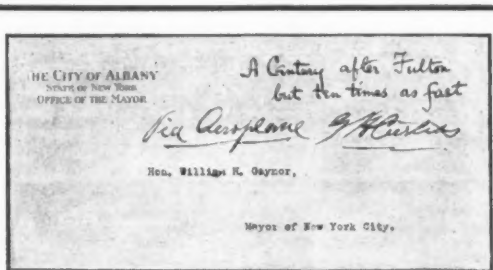 THE CITY OF ALBANY
STATE OF NEW YORK
OFFICE OF THE MAYOR
A Century after Fulton
but ten times as fast
Via Aeroplane G H Curtiss
Hon. William H. Gaynor,
Mayor of New York City.